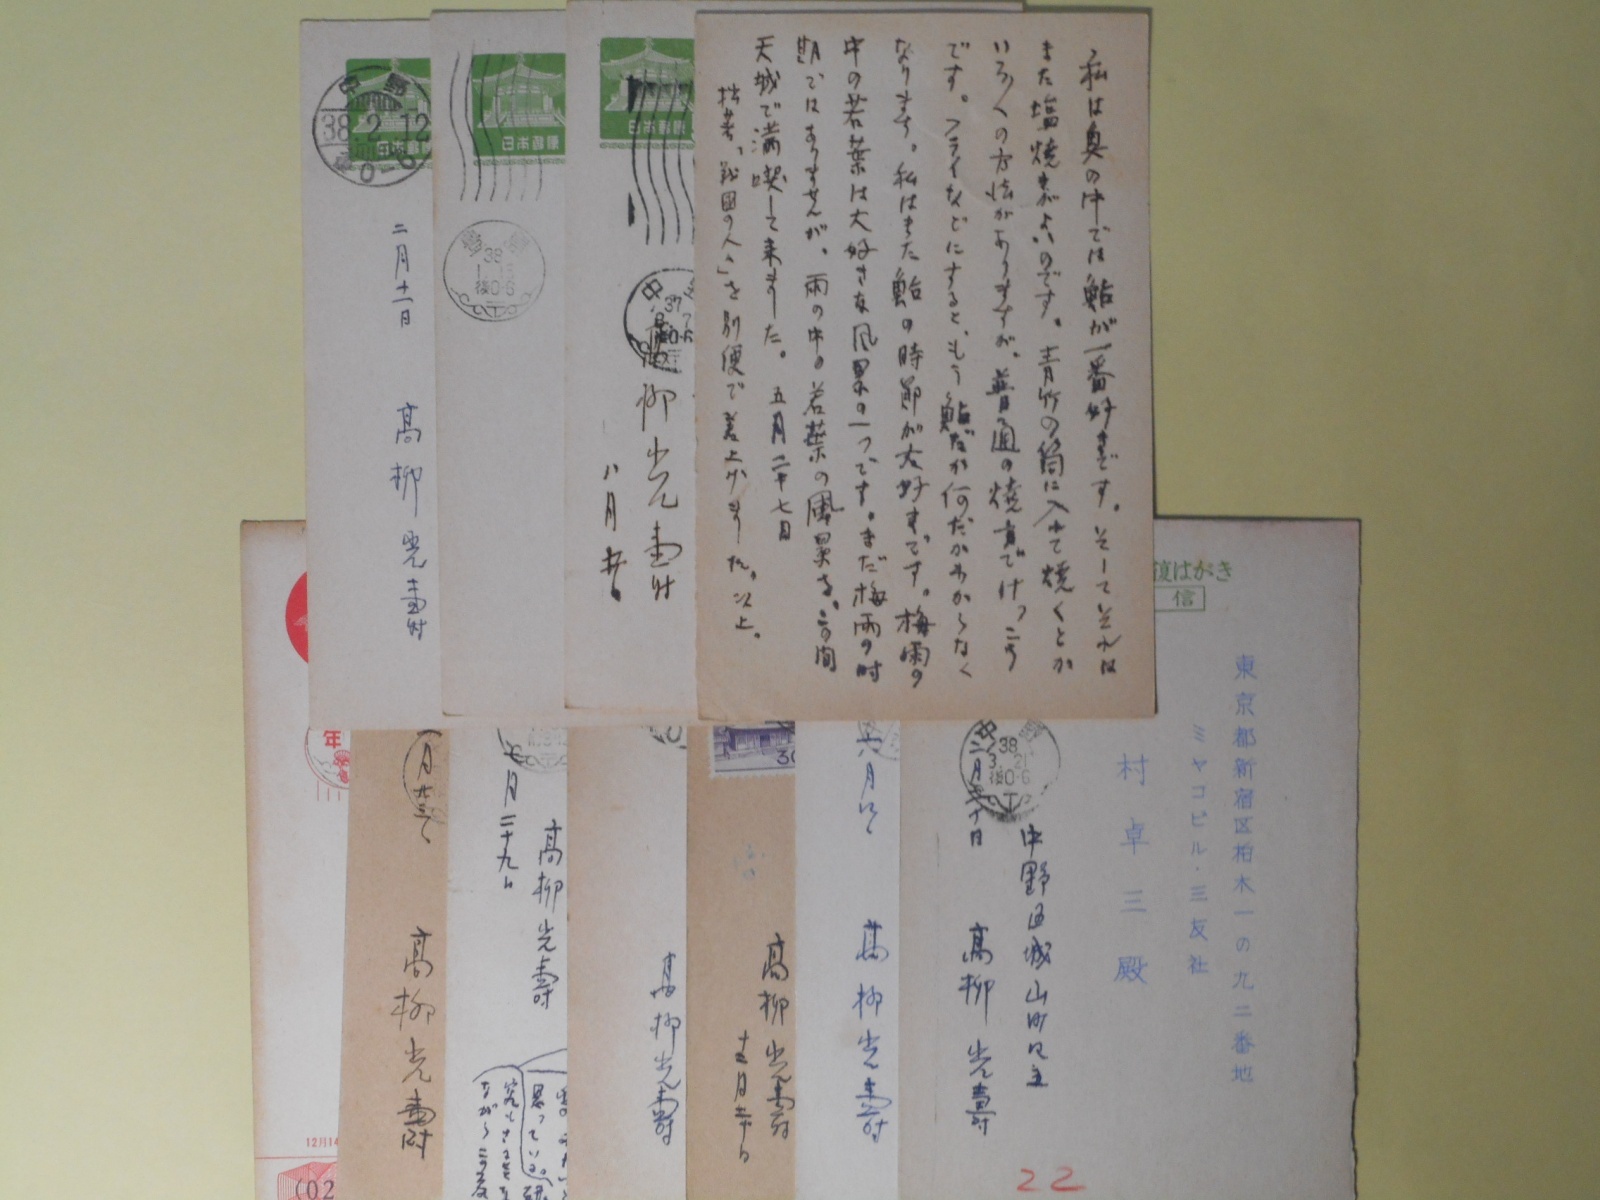 私は魚の中では鮎が一番好きです。そしてそれは
また塩焼きがよいのです。青竹の筒に入れて焼くとか
いろ〱の方法がありますが、普通の焼き方でけっこう
です。フライなどにすると、もう鮎だか何だかわからなく
なります。私はまた鮎の時節が大好きです。梅雨の
中の若葉は大好きな風景の一つです。まだ梅雨の時
期ではありませんが、雨の中の若葉の風景を、この間
天城で満喫して来ました。 五月二十七日
拙著、「戦国の人々」を別便で差上げました。以上。
日本郵便
高柳光寿
八月
日本郵便
38
後0-6
日本郵便
中野
38.2.12
二月十一日
高柳光寿
復はがき
信
東京都新宿区柏木一の九二番地
ミヤコビル・三友社
村卓三殿
中野
38
3.21
後0-6
中野区城山町
高柳光寿
22
六月
高柳光寿
30
高柳光寿
十二月二十日
高柳光寿
七月二十九日
高柳光寿
思っている。研
ながらこの友
高柳光寿
年
12月14
(02